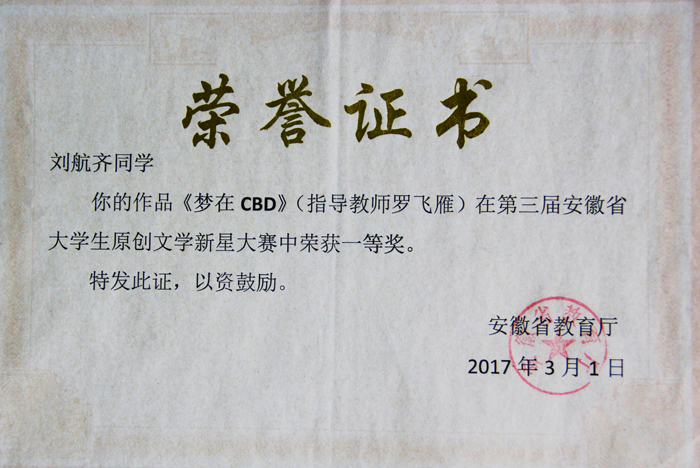 荣誉证书
刘航齐同学
你的作品《梦在 CBD》（指导教师罗飞雁）在第三届安徽省
大学生原创文学新星大赛中荣获一等奖。
特发此证，以资鼓励。
安徽省教育厅
2017 年 3 月 1 日